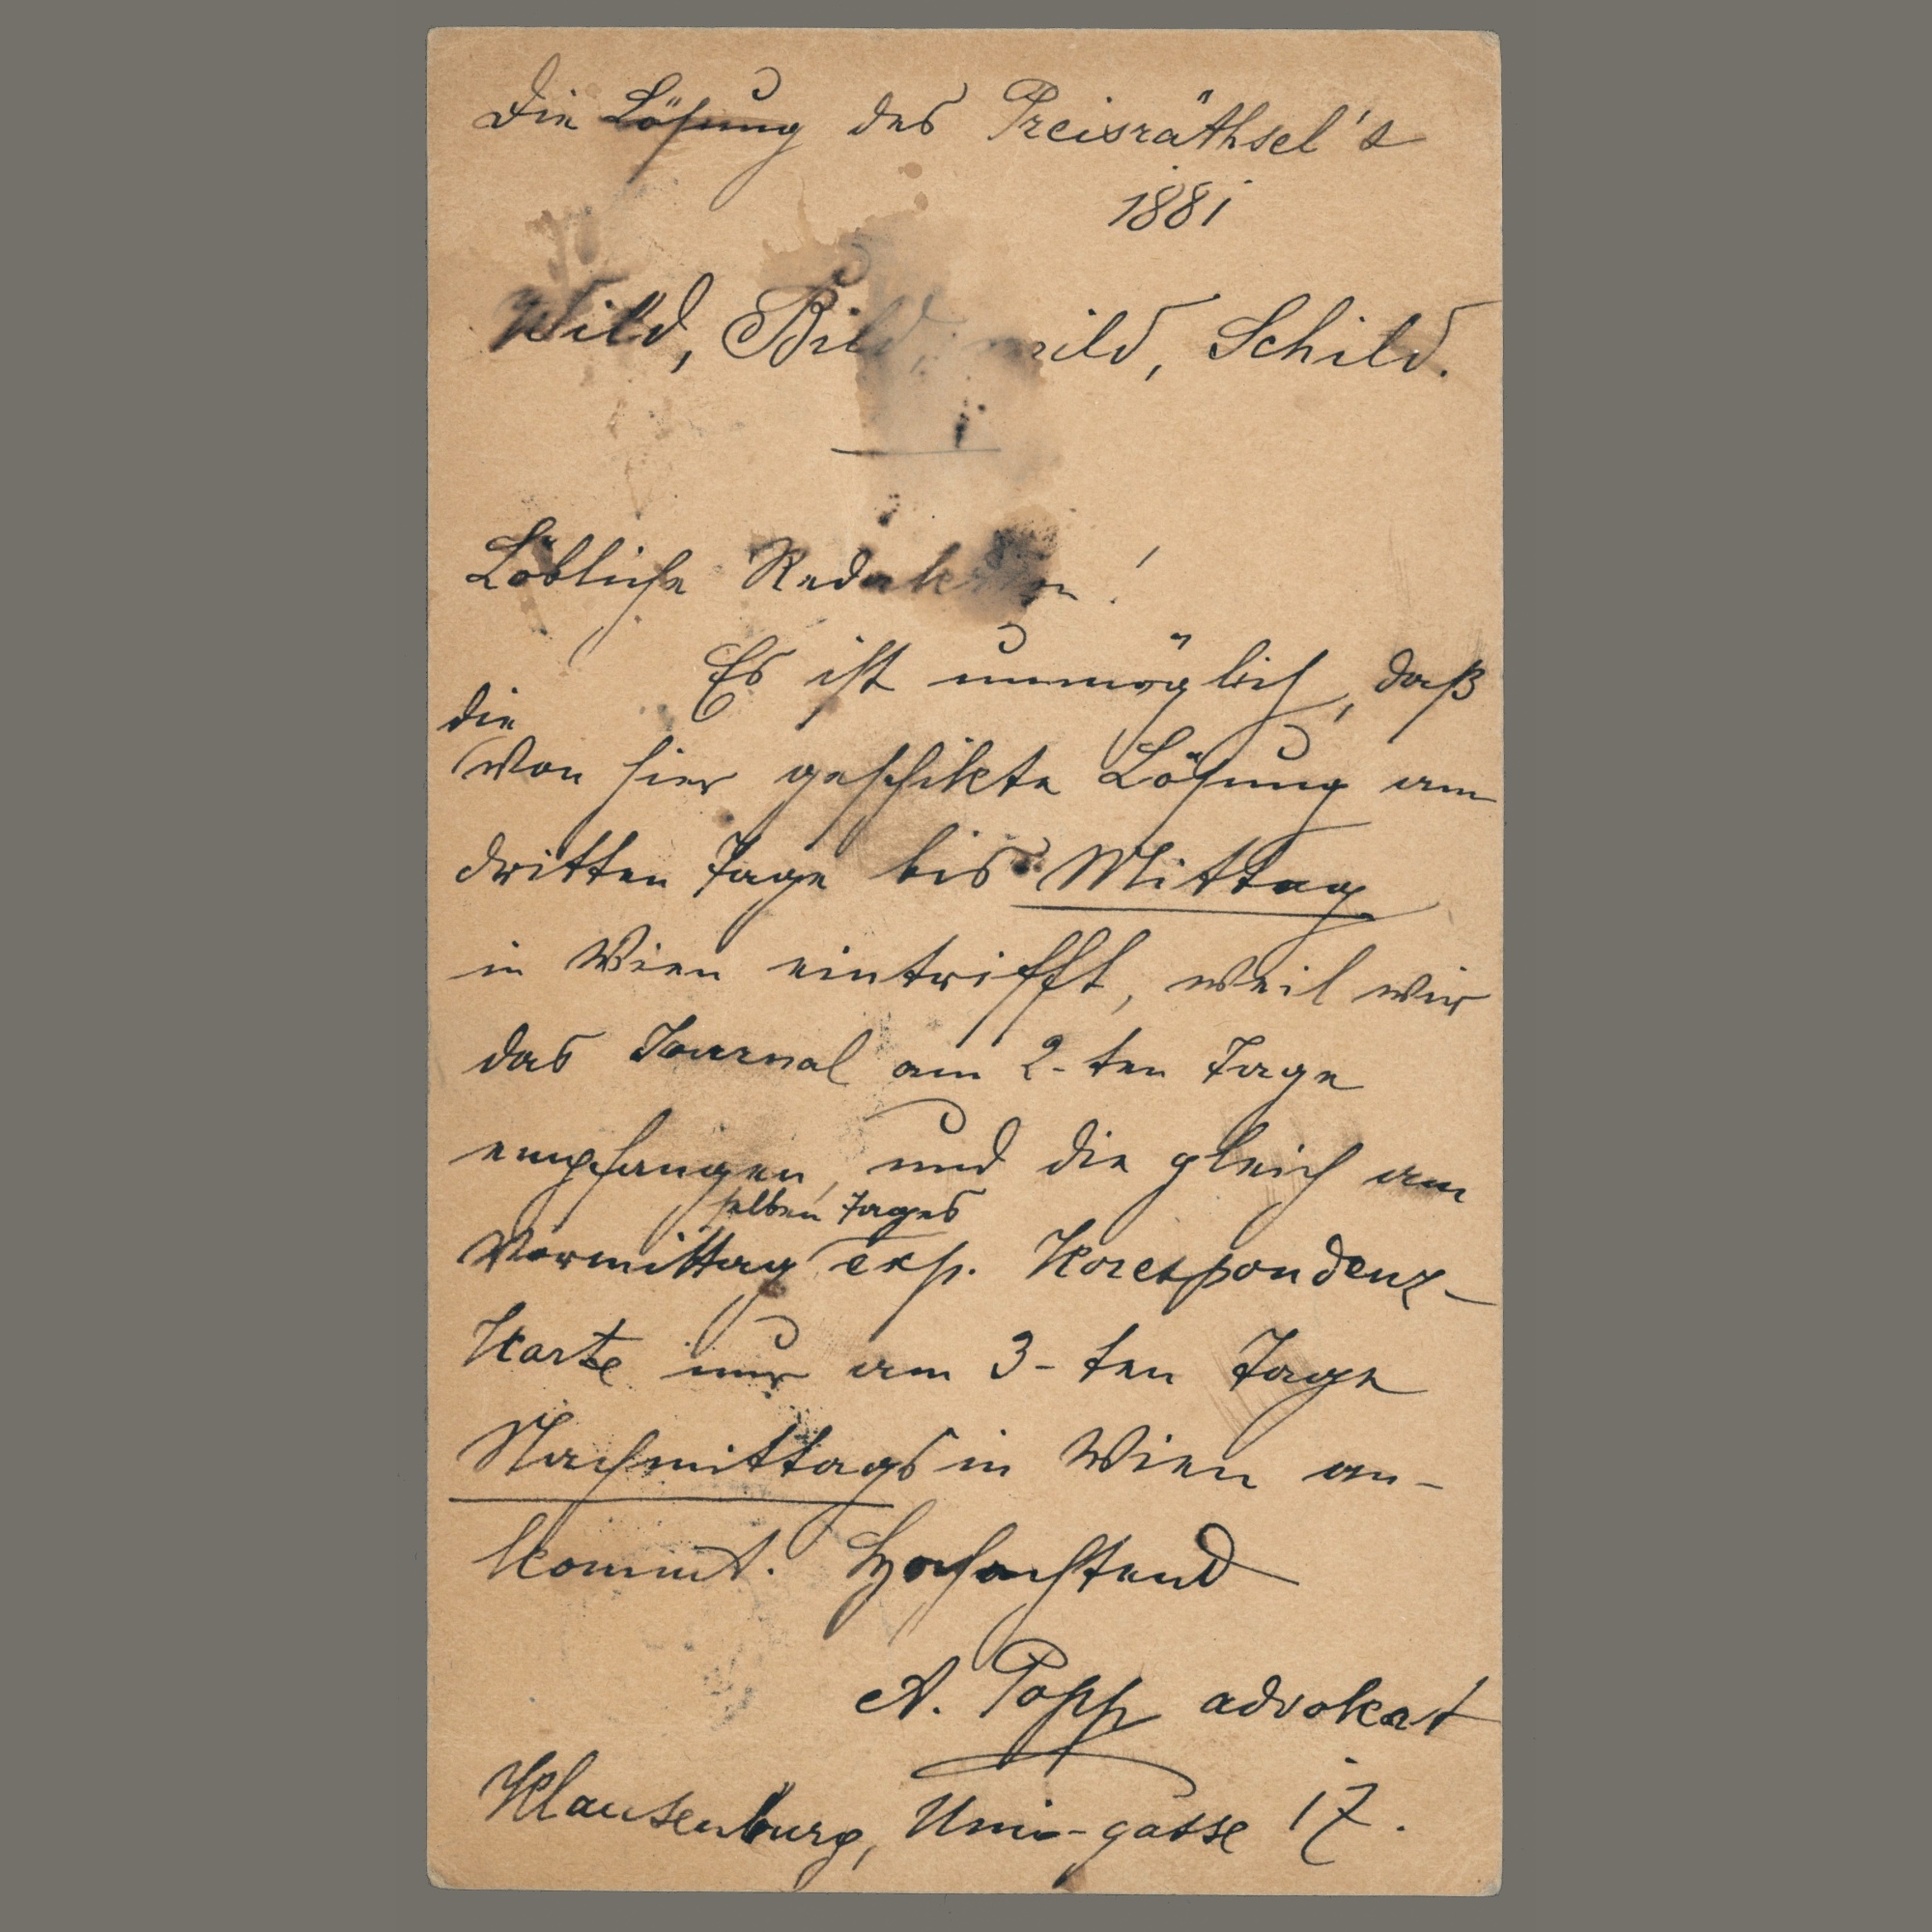 Die Lösung des Preisräthsel's
1881
Wild, Bild, mild, Schild.
Löbliche Redaktion!
Es ist unmöglich, daß
die
von hier geschikte Lösung am
dritten Tage bis Mittag
in Wien eintrifft, weil wir
das Journal am 2-ten Tage
empfangen, und die gleich am
selben Tages
Vormittag exp. Korespondenz-
Karte nur am 3-ten Tage
Nachmittags in Wien an-
kommt. Hochachtend
A. Popp advokat
Klausenburg, Unio-gasse 17.